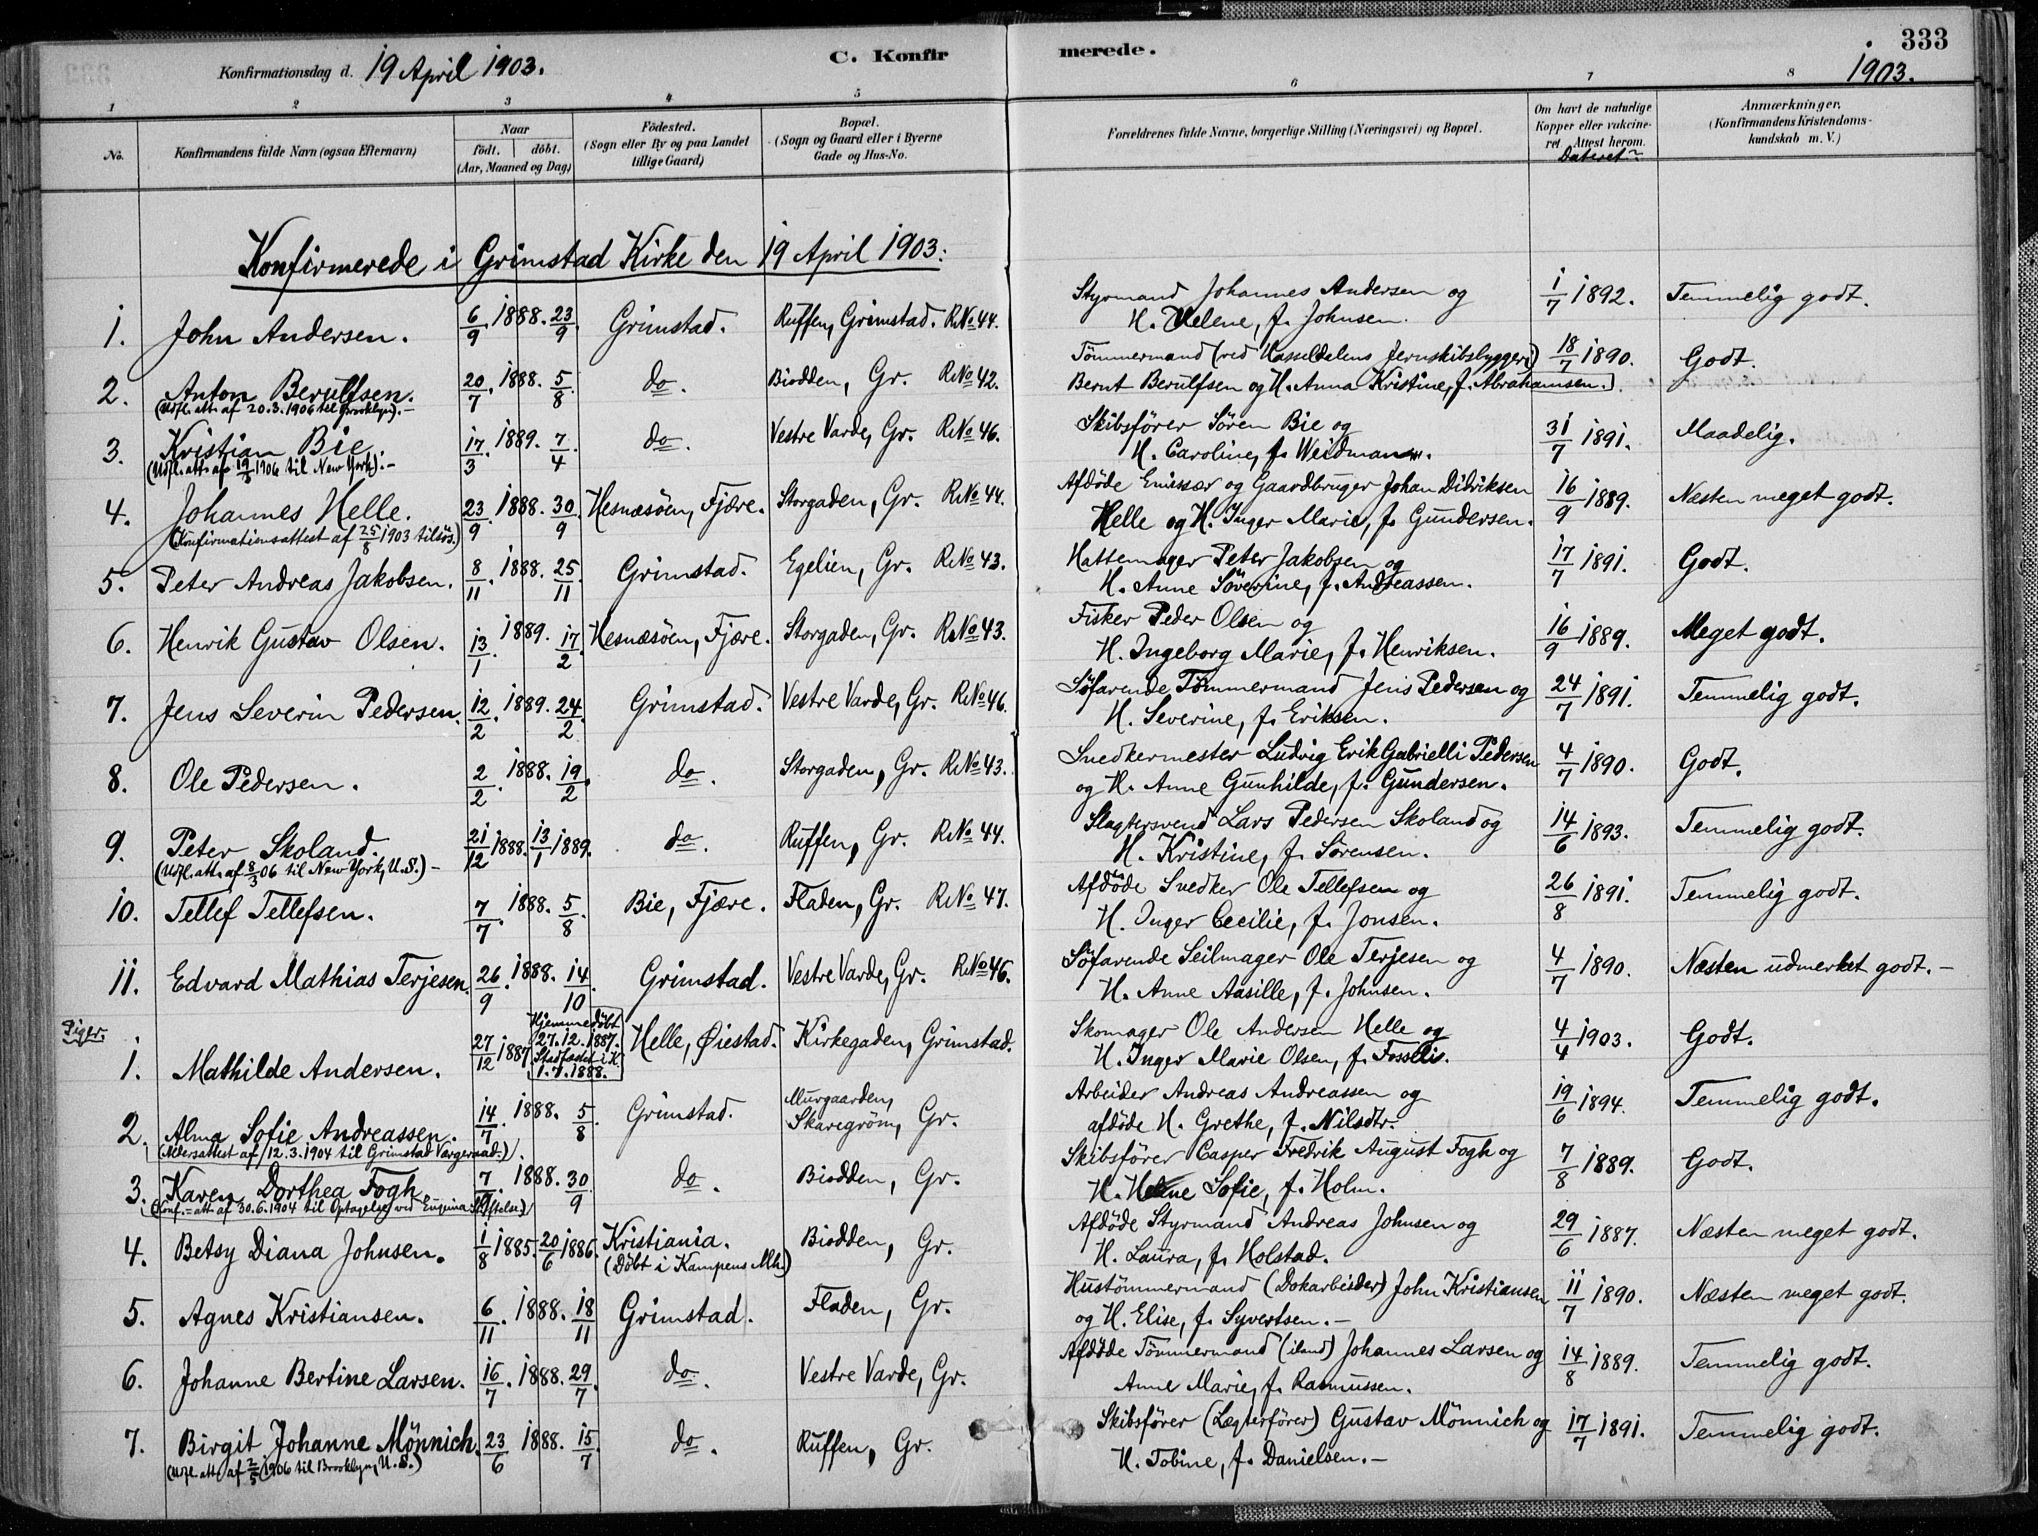 333
Konfirmationsdag d. 19 April 1903.
C. Konfirmerede.
1903.
1 2 3 4 5 6 7 8
No.
Konfirmandens fulde Navn (ogsaa Efternavn)
Naar
født. döbt.
(Aar, Maaned og Dag)
Födested.
(Sogn eller By og paa Landet
tillige Gaard)
Bopæl.
(Sogn og Gaard eller i Byerne
Gade og Hus-No.
Forældrenes fulde Navne, borgerlige Stilling (Næringsvei) og Bopæl.
Om havt de naturlige
Kopper eller vakcine-
ret. Attest herom.
Dateret
Anmærkninger.
(Konfirmandens Kristendoms-
kundskab m. V.)
Konfirmerede i Grimstad Kirke den 19 April 1903:
1. John Andersen. 6/9. 1888. 23/9. Grimstad. Ruffen, Grimstad. R. No 44. Styrmand Johannes Andersen og 1/7 1892. Temmelig godt.
H. Helene, f. Johnsen.
2. Anton Berulfsen. 20/7. 1888. 5/8. do. Biodden, Gr. R. No 42. Tömmermand (ved Hasseldalens Jernskibsbyggeri) 18/7 1890. Godt.
(Udfl. att. af 20.3.1906 til Brooklyn).— Bernt Berulfsen og H. Anna Kristine, f. Abrahamsen.
3. Kristian Bie. 17/3. 1889. 7/4. do. Vestre Varde, Gr. R. No 46. Skibsförer Sören Bie og 31/7 1891. Maadelig.
(Udfl. att. af 19/3 1906 til New York).— H. Caroline, f. Weidman.
4. Johannes Helle. 23/9. 1888. 30/9. Hesnæsöen, Fjære. Storgaden, Gr. R. No 44. Afdöde Emissær og Gaardbruger Johan Didriksen 16/9 1889. Næsten meget godt.
(Konfirmationsattest af 25/8 1903 tilsös.) Helle og H. Inger Marie, f. Gundersen.
5. Peter Andreas Jakobsen. 8/11. 1888. 25/11. Grimstad. Egelien, Gr. R. No 43. Hattemager Peter Jakobsen og 17/7 1891. Godt.
H. Anne Söverine, f. Andreassen.
6. Henrik Gustav Olsen. 13/1. 1889. 17/2. Hesnæsöen, Fjære. Storgaden, Gr. R. No 43. Fisker Peder Olsen og 16/9 1889. Meget godt.
H. Ingeborg Marie, f. Henriksen.
7. Jens Severin Pedersen. 12/2. 1889. 24/2. Grimstad. Vestre Varde, Gr. R. No 46. Söfarende Tömmermand Jens Pedersen og 24/7 1891. Temmelig godt.
H. Severine, f. Eriksen.
8. Ole Pedersen. 2/2. 1888. 19/2. do. Storgaden, Gr. R. No 43. Snedkermester Ludvig Erik Gabrielli Pedersen 4/7 1890. Godt.
og H. Anne Gunhilde, f. Gundersen.
9. Peter Skoland. 21/12 1888. 13/1 1889. do. Ruffen, Gr. R. No 44. Slagtersvend Lars Pedersen Skoland og 14/6 1893. Temmelig godt.
(Udfl. att. af 8/3 06 til New York, U.S.)— H. Kristine, f. Sörensen.
10. Tellef Tellefsen. 7/7. 1888. 5/8. Bie, Fjære. Fladen, Gr. R. No 47. Afdöde Snedker Ole Tellefsen og 26/8 1891. Temmelig godt.
H. Inger Cecilie, f. Jonsen.
11. Edvard Mathias Terjesen. 26/9. 1888. 14/10. Grimstad. Vestre Varde, Gr. R. No 46. Söfarende Seilmager Ole Terjesen og 4/7 1890. Næsten udmerket godt.—
H. Anne Aasille, f. Johnsen.
Piger.
1. Mathilde Andersen. 27/12 1887 Hjemmedöbt 27.12.1887. Stadfæstet i K. 1.7.1888. Helle, Øiestad. Kirkegaden, Grimstad. Skomager Ole Andersen Helle og 4/4 1903. Godt.
H. Inger Marie Olsen, f. Fosslis.
2. Alma Sofie Andreassen. 14/7. 1888. 5/8. Grimstad. Murgaarden, Skaregröm, Gr. Arbeider Andreas Andreassen og 19/6 1894. Temmelig godt.
(Aldersattest af 12.3.1904 til Grimstad Værgeraad.) afdöde H. Grethe, f. Nilsdtr.
3. Karen Dorthea Fogh. 7/9. 1888. 30/9. do. Biodden, Gr. Skibsförer Casper Fredrik August Fogh og 7/8 1889. Godt.
(Conf.-att. af 30.6.1904 til Optagelse ved Eugenia Stiftelse) H. Helene Sofie, f. Holm.
4. Betsy Diana Johnsen. 1/8 1885. 20/6 1886. Kristiania. Biodden, Gr. Afdöde Styrmand Andreas Johnsen og 29/6 1887. Næsten meget godt.
(Döbt i Kampens Mh.) H. Laura, f. Holstad.
5. Agnes Kristiansen. 6/11. 1888. 18/11 Grimstad. Fladen, Gr. Hustömmermand (Dokarbeider) John Kristiansen 11/7 1890. Næsten meget godt.
og H. Elise, f. Syvertsen.—
6. Johanne Bertine Larsen. 16/7. 1888. 29/7. do. Vestre Varde, Gr. Afdöde Tömmermand (iland) Johannes Larsen og 14/8 1889. Temmelig godt.
Anne Marie, f. Rasmussen.
7. Birgit Johanne Mönnich. 23/6 1888. 15/7. do. Ruffen, Gr. Skibsförer (Lægterförer) Gustav Mönnich og 17/7 1891. Temmelig godt.
(Udfl. att. af 2/5 1906 til Brooklyn, U.S.) H. Tobine, f. Danielsen.—